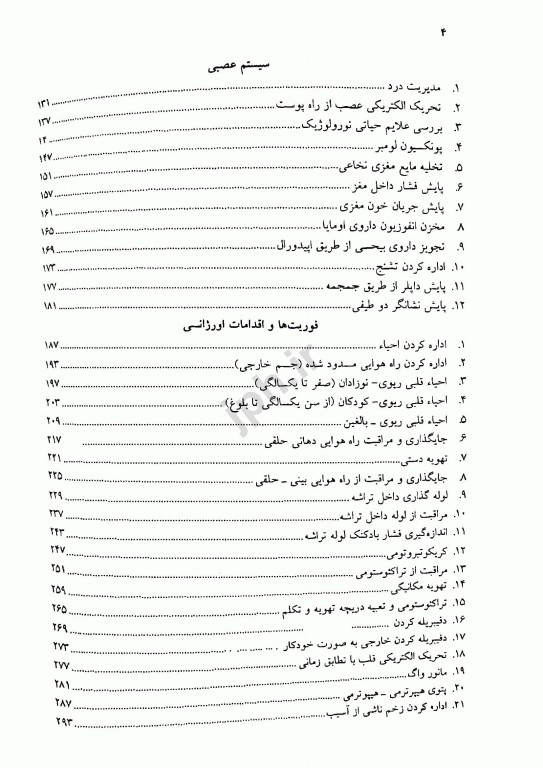 ۴
سیستم عصبی
۱. مدیریت درد ........ ۱۳۱
۲. تحریک الکتریکی عصب از راه پوست ........ ۱۳۷
۳. بررسی علایم حیاتی نورولوژیک ........ ۱۴
۴. پونکسیون لومبر ........ ۱۴۷
۵. تخلیه مایع مغزی نخاعی ........ ۱۵۱
۶. پایش فشار داخل مغز ........ ۱۵۷
۷. پایش جریان خون مغزی ........ ۱۶۱
۸. مخزن انفوزیون داروی اومایا ........ ۱۶۵
۹. تجویز داروی بیحسی از طریق اپیدورال ........ ۱۶۹
۱۰. اداره کردن تشنج ........ ۱۷۳
۱۱. پایش داپلر از طریق جمجمه ........ ۱۷۷
۱۲. پایش نشانگر دو طیفی ........ ۱۸۱
فوریت‌ها و اقدامات اورژانسی
۱. اداره کردن احیاء ........ ۱۸۷
۲. اداره کردن راه هوایی مسدود شده (جسم خارجی) ........ ۱۹۳
۳. احیاء قلبی ریوی- نوزادان (صفر تا یکسالگی) ........ ۱۹۷
۴. احیاء قلبی ریوی- کودکان (از سن یکسالگی تا بلوغ) ........ ۲۰۳
۵. احیاء قلبی ریوی ـ بالغین ........ ۲۰۹
۶. جایگذاری و مراقبت راه هوایی دهانی حلقی ۲۱۷
۷. تهویه دستی ........ ۲۲۱
۸. جایگذاری و مراقبت از راه هوایی بینی ـ حلقی ........ ۲۲۵
۹. لوله گذاری داخل تراشه ........ ۲۲۹
۱۰. مراقبت از لوله داخل تراشه ........ ۲۳۷
۱۱. اندازه‌گیری فشار بادکنک لوله تراشه ........ ۲۴۳
۱۲. کریکوتیروتومی ........ ۲۴۷
۱۳. مراقبت از تراکئوستومی ........ ۲۵۱
۱۴. تهویه مکانیکی ........ ۲۵۹
۱۵. تراکئوستومی و تعبیه دریچه تهویه و تکلم ........ ۲۶۵
۱۶. دفیبریله کردن ........ ۲۶۹
۱۷. دفیبریله کردن خارجی به صورت خودکار ........ ۲۷۳
۱۸. تحریک الکتریکی قلب با تطابق زمانی ........ ۲۷۷
۱۹. مانور واگ ........ ۲۸۱
۲۰. پتوی هیپرترمی ـ هیپوترمی ........ ۲۸۷
۲۱. اداره کردن زخم ناشی از آسیب ........ ۲۹۳
jph.ir